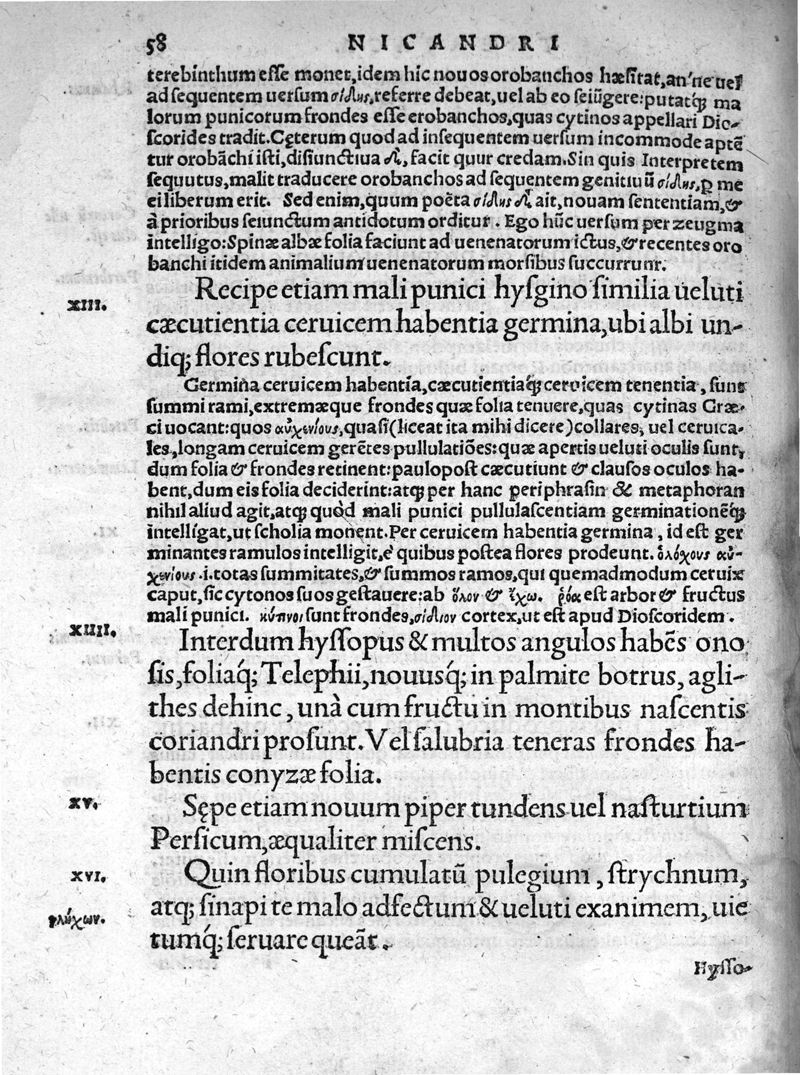 58 NICANDRI
terebinthum esse monet, idem hic nouos orobanchos hæsitat, an'ne uel
ad sequentem uersum σίδης, referre debeat, uel ab eo seiũgere: putatq; ma
lorum punicorum frondes esse erobanchos, quas cytinos appellari Dio-
scorides tradit. Cęterum quod ad insequentem uersum incommode aptẽ
tur orobãchi isti, disiunctiua δ', facit quur credam. Sin quis Interpretem
sequutus, malit traducere orobanchos ad sequentem genitiuũ σίδης, ꝑ me
ei liberum erit. Sed enim, quum poëta σίδης δ' ait, nouam sententiam, &
à prioribus seiunctum antidotum orditur. Ego hũc uersum per zeugma
intelligo: Spinæ albæ folia faciunt ad uenenatorum ictus, & recentes oro
banchi itidem animalium uenenatorum morsibus succurrunt.
XIII. Recipe etiam mali punici hysgino similia ueluti
cæcutientia ceruicem habentia germina, ubi albi un-
diq; flores rubescunt.
Germina ceruicem habentia, cæcutientiaq; ceruicem tenentia, sunt
summi rami, extremæque frondes quæ folia tenuere, quas cytinas Græ-
ci uocant: quos αὐχενίους, quasi (liceat ita mihi dicere) collares, uel ceruica-
les, longam ceruicem gerẽtes pullulatiões: quæ apertis ueluti oculis sunt,
dum folia & frondes retinent: paulopost cæcutiunt & clausos oculos ha-
bent, dum eis folia deciderint: atq; per hanc periphrasin & metaphoran
nihil aliud agit, atq; quòd mali punici pullulascentiam germinationẽq;
intelligat, ut scholia monent. Per ceruicem habentia germina, id est ger
minantes ramulos intelligit, è quibus postea flores prodeunt. ὁλόχους αὐ-
χενίους .i. totas summitates, & summos ramos, qui quemadmodum ceruix
caput, sic cytonos suos gestauere: ab ὅλον & ἔχω. ῥόα est arbor & fructus
mali punici. κύτινοι sunt frondes, σίδιον cortex, ut est apud Dioscoridem.
XIIII. Interdum hyssopus & multos angulos habẽs ono
sis, foliaq; Telephii, nouusq; in palmite botrus, agli-
thes dehinc, unà cum fructu in montibus nascentis
coriandri prosunt. Vel salubria teneras frondes ha-
bentis conyzæ folia.
XV. Sępe etiam nouum piper tundens uel nasturtium
Persicum, æqualiter miscens.
XVI. Quin floribus cumulatũ pulegium, strychnum,
γλήχων. atq; sinapi te malo adfectum & ueluti exanimem, uic
tumq; seruare queãt.
Hysso-